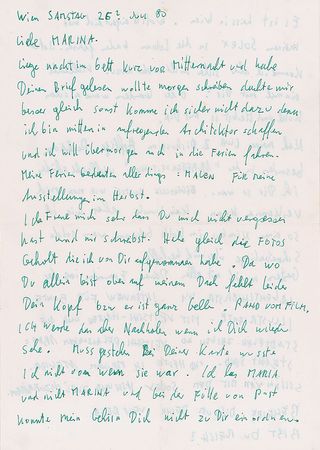 Wien SAMSTAG 26? Juli 80
Liebe MARINA.
Liege nackt im bett kurz vor Mitternacht und habe
Deinen Brief gelesen wollte morgen schreiben dachte mir
besser gleich sonst komme ich sicher nicht dazu denn
ich bin mitten in aufregenden Architektur schaffen
und ich will übermorgen auch in die Ferien fahren.
Meine Ferien bedeuten allerdings: MALEN für meine
Ausstellungen im Herbst.
mich sehr dass Du mich nicht vergessen
hast und mir schreibst. Habe gleich die FOTOS
geholt die ich von Dir aufgenommen habe. Da wo
Du allein bist oben auf meinem Dach fehlt leider
Dein Kopf bzw er ist ganz hell. RAND VOM FILM.
Ich werde das aber Nachholen wenn ich Dich wieder
sehe. Muss gestehen Bei Deiner Karte wusste
ich nicht von wem sie war. Ich las MARIA
und nicht MARINA und bei der Fülle von Post
konnte mein Gehirn Dich nicht zu Dir einordnen.